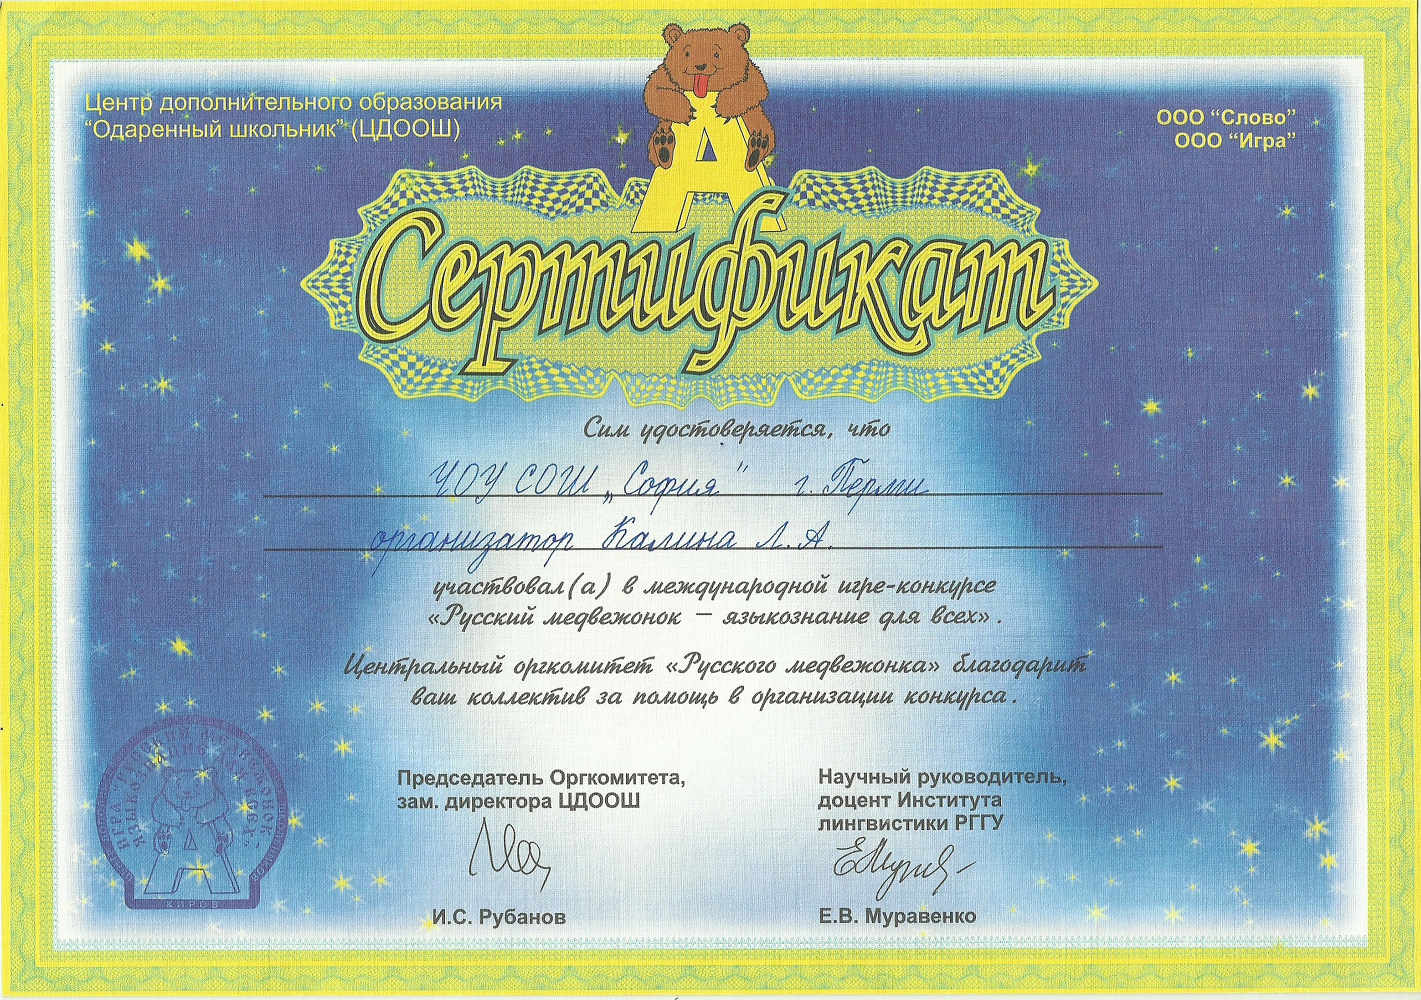 Центр дополнительного образования
“Одаренный школьник” (ЦДООШ)
ООО “Слово”
ООО “Игра”
А
Сертификат
Сим удостоверяется, что
ЧОУ СОШ „София" г. Перми
организатор Калина Л.А.
участвовал(а) в международной игре-конкурсе
«Русский медвежонок – языкознание для всех».
Центральный оргкомитет «Русского медвежонка» благодарит
ваш коллектив за помощь в организации конкурса.
Председатель Оргкомитета,
зам. директора ЦДООШ
И.С. Рубанов
Научный руководитель,
доцент Института
лингвистики РГГУ
Е.В. Муравенко
ИГРА "РУССКИЙ МЕДВЕЖОНОК
ЯЗЫКОЗНАНИЕ ДЛЯ ВСЕХ"
КИРОВ